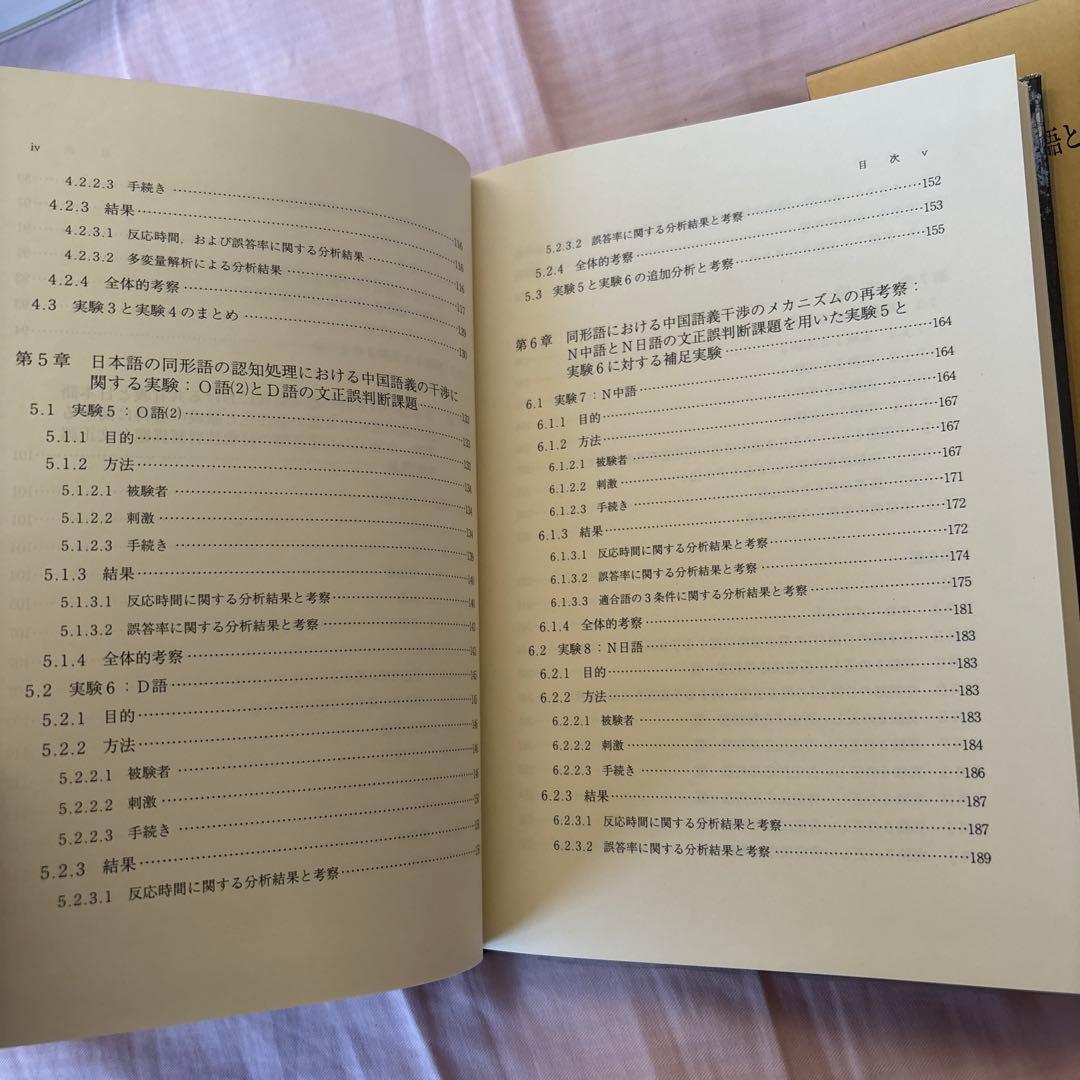 iv
4.2.2.3 手続き ……… 116
4.2.3 結果 ……… 116
4.2.3.1 反応時間，および誤答率に関する分析結果 ……… 116
4.2.3.2 多変量解析による分析結果 ……… 117
4.2.4 全体的考察 ……… 129
4.3 実験3と実験4のまとめ ……… 130
第5章 日本語の同形語の認知処理における中国語義の干渉に
関する実験：O語(2)とD語の文正誤判断課題 ………
5.1 実験5：O語(2) ………
5.1.1 目的 ………
5.1.2 方法 ………
5.1.2.1 被験者 ………
5.1.2.2 刺激 ………
5.1.2.3 手続き ………
5.1.3 結果 ………
5.1.3.1 反応時間に関する分析結果と考察 ………
5.1.3.2 誤答率に関する分析結果と考察 ………
5.1.4 全体的考察 ………
5.2 実験6：D語 ………
5.2.1 目的 ………
5.2.2 方法 ………
5.2.2.1 被験者 ………
5.2.2.2 刺激 ………
5.2.2.3 手続き ………
5.2.3 結果 ………
5.2.3.1 反応時間に関する分析結果と考察 ………
目 次 v
5.2.3.2 誤答率に関する分析結果と考察 ……… 152
5.2.4 全体的考察 ……… 153
5.3 実験5と実験6の追加分析と考察 ……… 155
第6章 同形語における中国語義干渉のメカニズムの再考察：
N中語とN日語の文正誤判断課題を用いた実験5と
実験6に対する補足実験 ……… 164
6.1 実験7：N中語 ……… 164
6.1.1 目的 ………
6.1.2 方法 ……… 167
6.1.2.1 被験者 ……… 167
6.1.2.2 刺激 ……… 167
6.1.2.3 手続き ……… 171
6.1.3 結果 ……… 172
6.1.3.1 反応時間に関する分析結果と考察 ……… 172
6.1.3.2 誤答率に関する分析結果と考察 ……… 174
6.1.3.3 適合語の3条件に関する分析結果と考察 ……… 175
6.1.4 全体的考察 ……… 181
6.2 実験8：N日語 ……… 183
6.2.1 目的 ……… 183
6.2.2 方法 ……… 183
6.2.2.1 被験者 ……… 183
6.2.2.2 刺激 ……… 184
6.2.2.3 手続き ……… 186
6.2.3 結果 ……… 187
6.2.3.1 反応時間に関する分析結果と考察 ……… 187
6.2.3.2 誤答率に関する分析結果と考察 ……… 189
語と